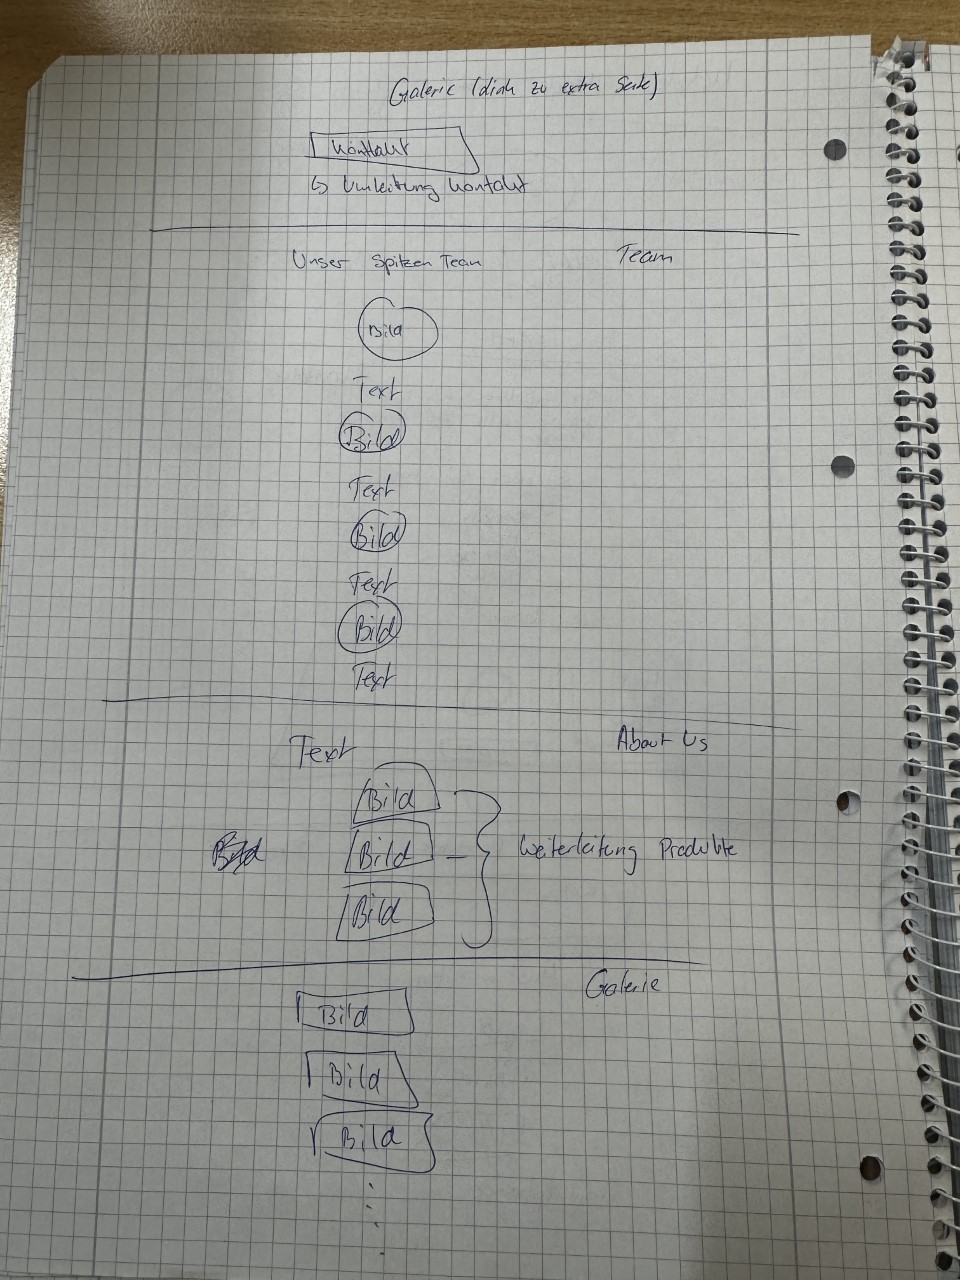 Galerie (Link zu extra Seite)
Kontakt
↳ Umleitung Kontakt
Unser Spitzen Team
Team
Bild
Text
Bild
Text
Bild
Text
Bild
Text
Text
About Us
Bild
Bild
Bild
Weiterleitung Produkte
Bild
Galerie
Bild
Bild
Bild